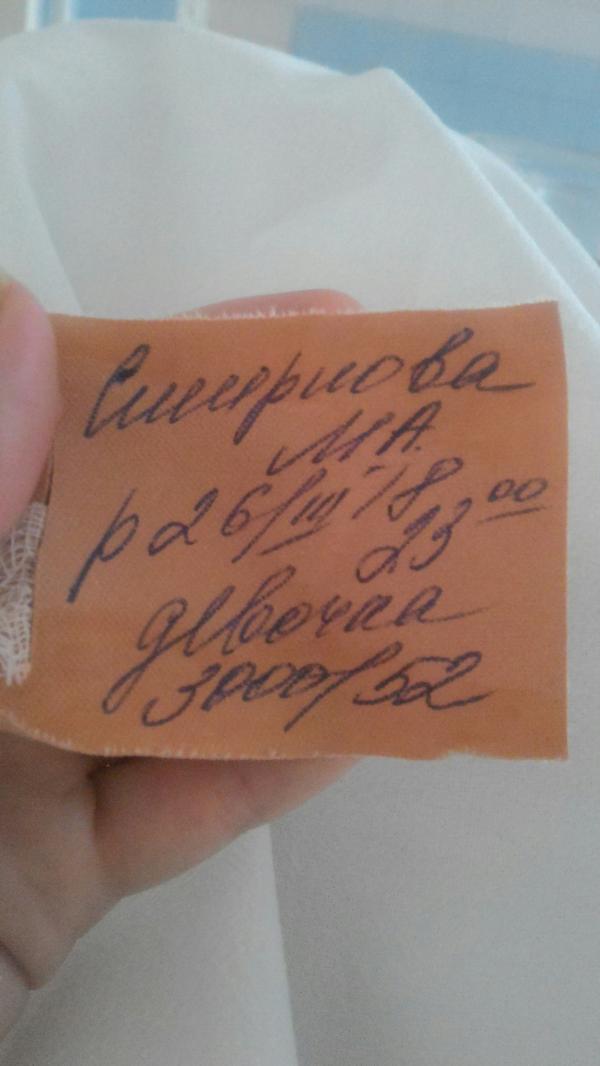 Смирнова
М А.
р 26/III-18
23 00
девочка
3000/52